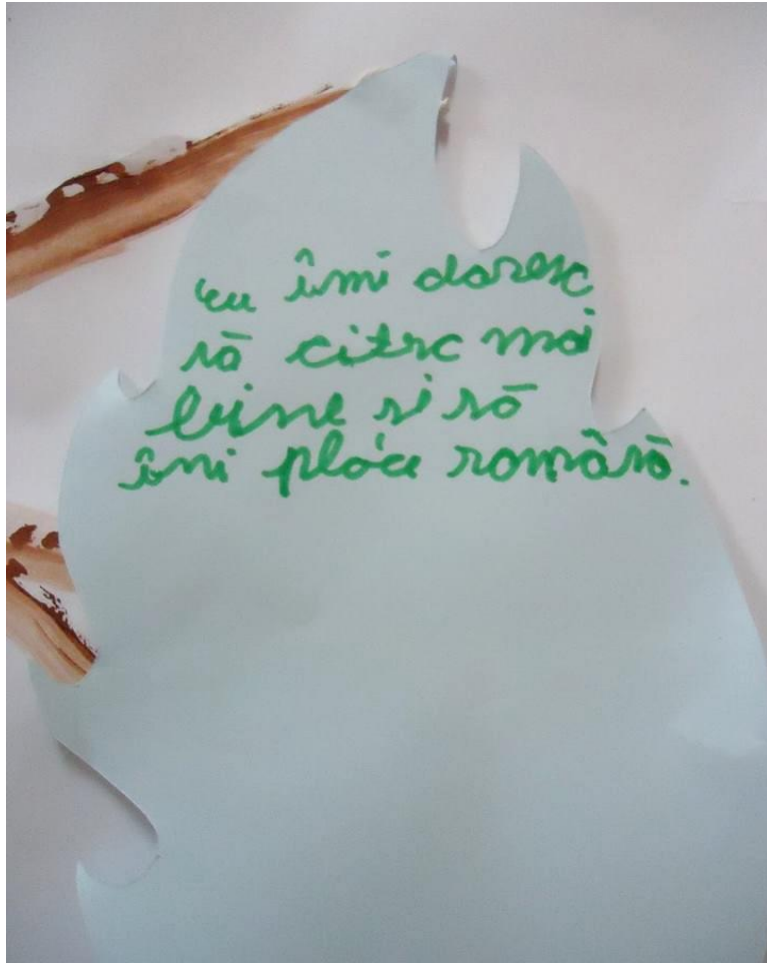 eu îmi doresc
să citesc mai
bine si să
îmi placă română.